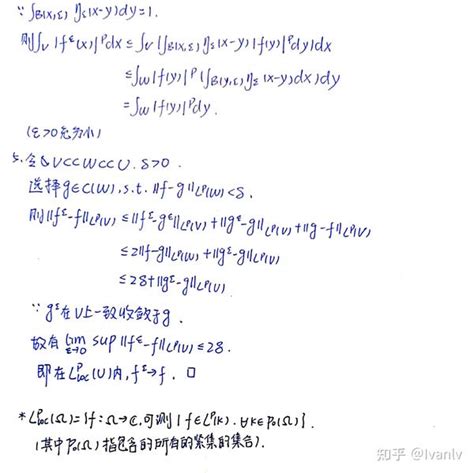 ∵ ∫_{B(x,ε)} η_ε(x-y)dy=1.
则∫_V |f^ε(x)|^p dx ≤ ∫_V (∫_{B(x,ε)} η_ε(x-y) |f(y)|^p dy)dx
≤ ∫_W |f(y)|^p (∫_{B(y,ε)} η_ε(x-y)dx)dy
= ∫_W |f(y)|^p dy.
(ε>0充分小)
5. 令 V⊂⊂W⊂⊂U. δ>0.
选择g∈C(W), s.t. ||f-g||_{L^p(W)}<δ.
则||f^ε-f||_{L^p(V)} ≤ ||f^ε-g^ε||_{L^p(V)}+||g^ε-g||_{L^p(V)}+||g-f||_{L^p(V)}
≤ 2||f-g||_{L^p(W)}+||g^ε-g||_{L^p(V)}
≤ 2δ+||g^ε-g||_{L^p(V)}
∵ g^ε在V上一致收敛于g.
故有 lim_{ε→0} sup ||f^ε-f||_{L^p(V)} ≤ 2δ.
即在L^p_{loc}(U)内, f^ε→f. □
* L^p_{loc}(Ω)={f:Ω→ℂ,可测 | f∈L^p(K). ∀K∈P_0(Ω)}.
(其中P_0(Ω) 指包含的所有的紧集的集合).
知乎 @Ivanlv